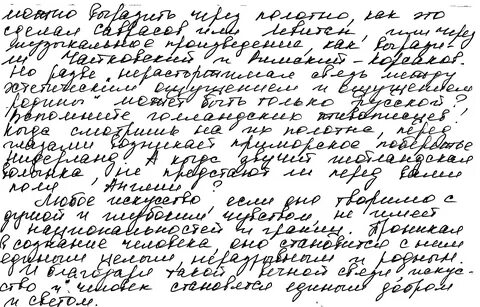 можно выразить через полотно, как это
сделал Саврасов или Левитан, или через
музыкальное произведение, как вырази-
ли Чайковский и Римский-Корсаков.
Но разве нерасторжимая связь между
эстетическим ощущением и ощущением
родины может быть только русской?
Вспомните голландских живописцев!
Когда смотришь на их полотна, перед
глазами возникает приморское побережье
Нидерланд. А когда звучит шотландская
волынка, не предстают ли перед вами
поля Англии?
Любое искусство, если оно творимо с
душой и глубоким чувством, не имеет
национальностей и границ. Проникая
в сознание человека, оно становится с ним
единым целым, неразрывным и родным.
И благодаря такой вечной связи искус-
ство и человек становятся единым добром
и светом.